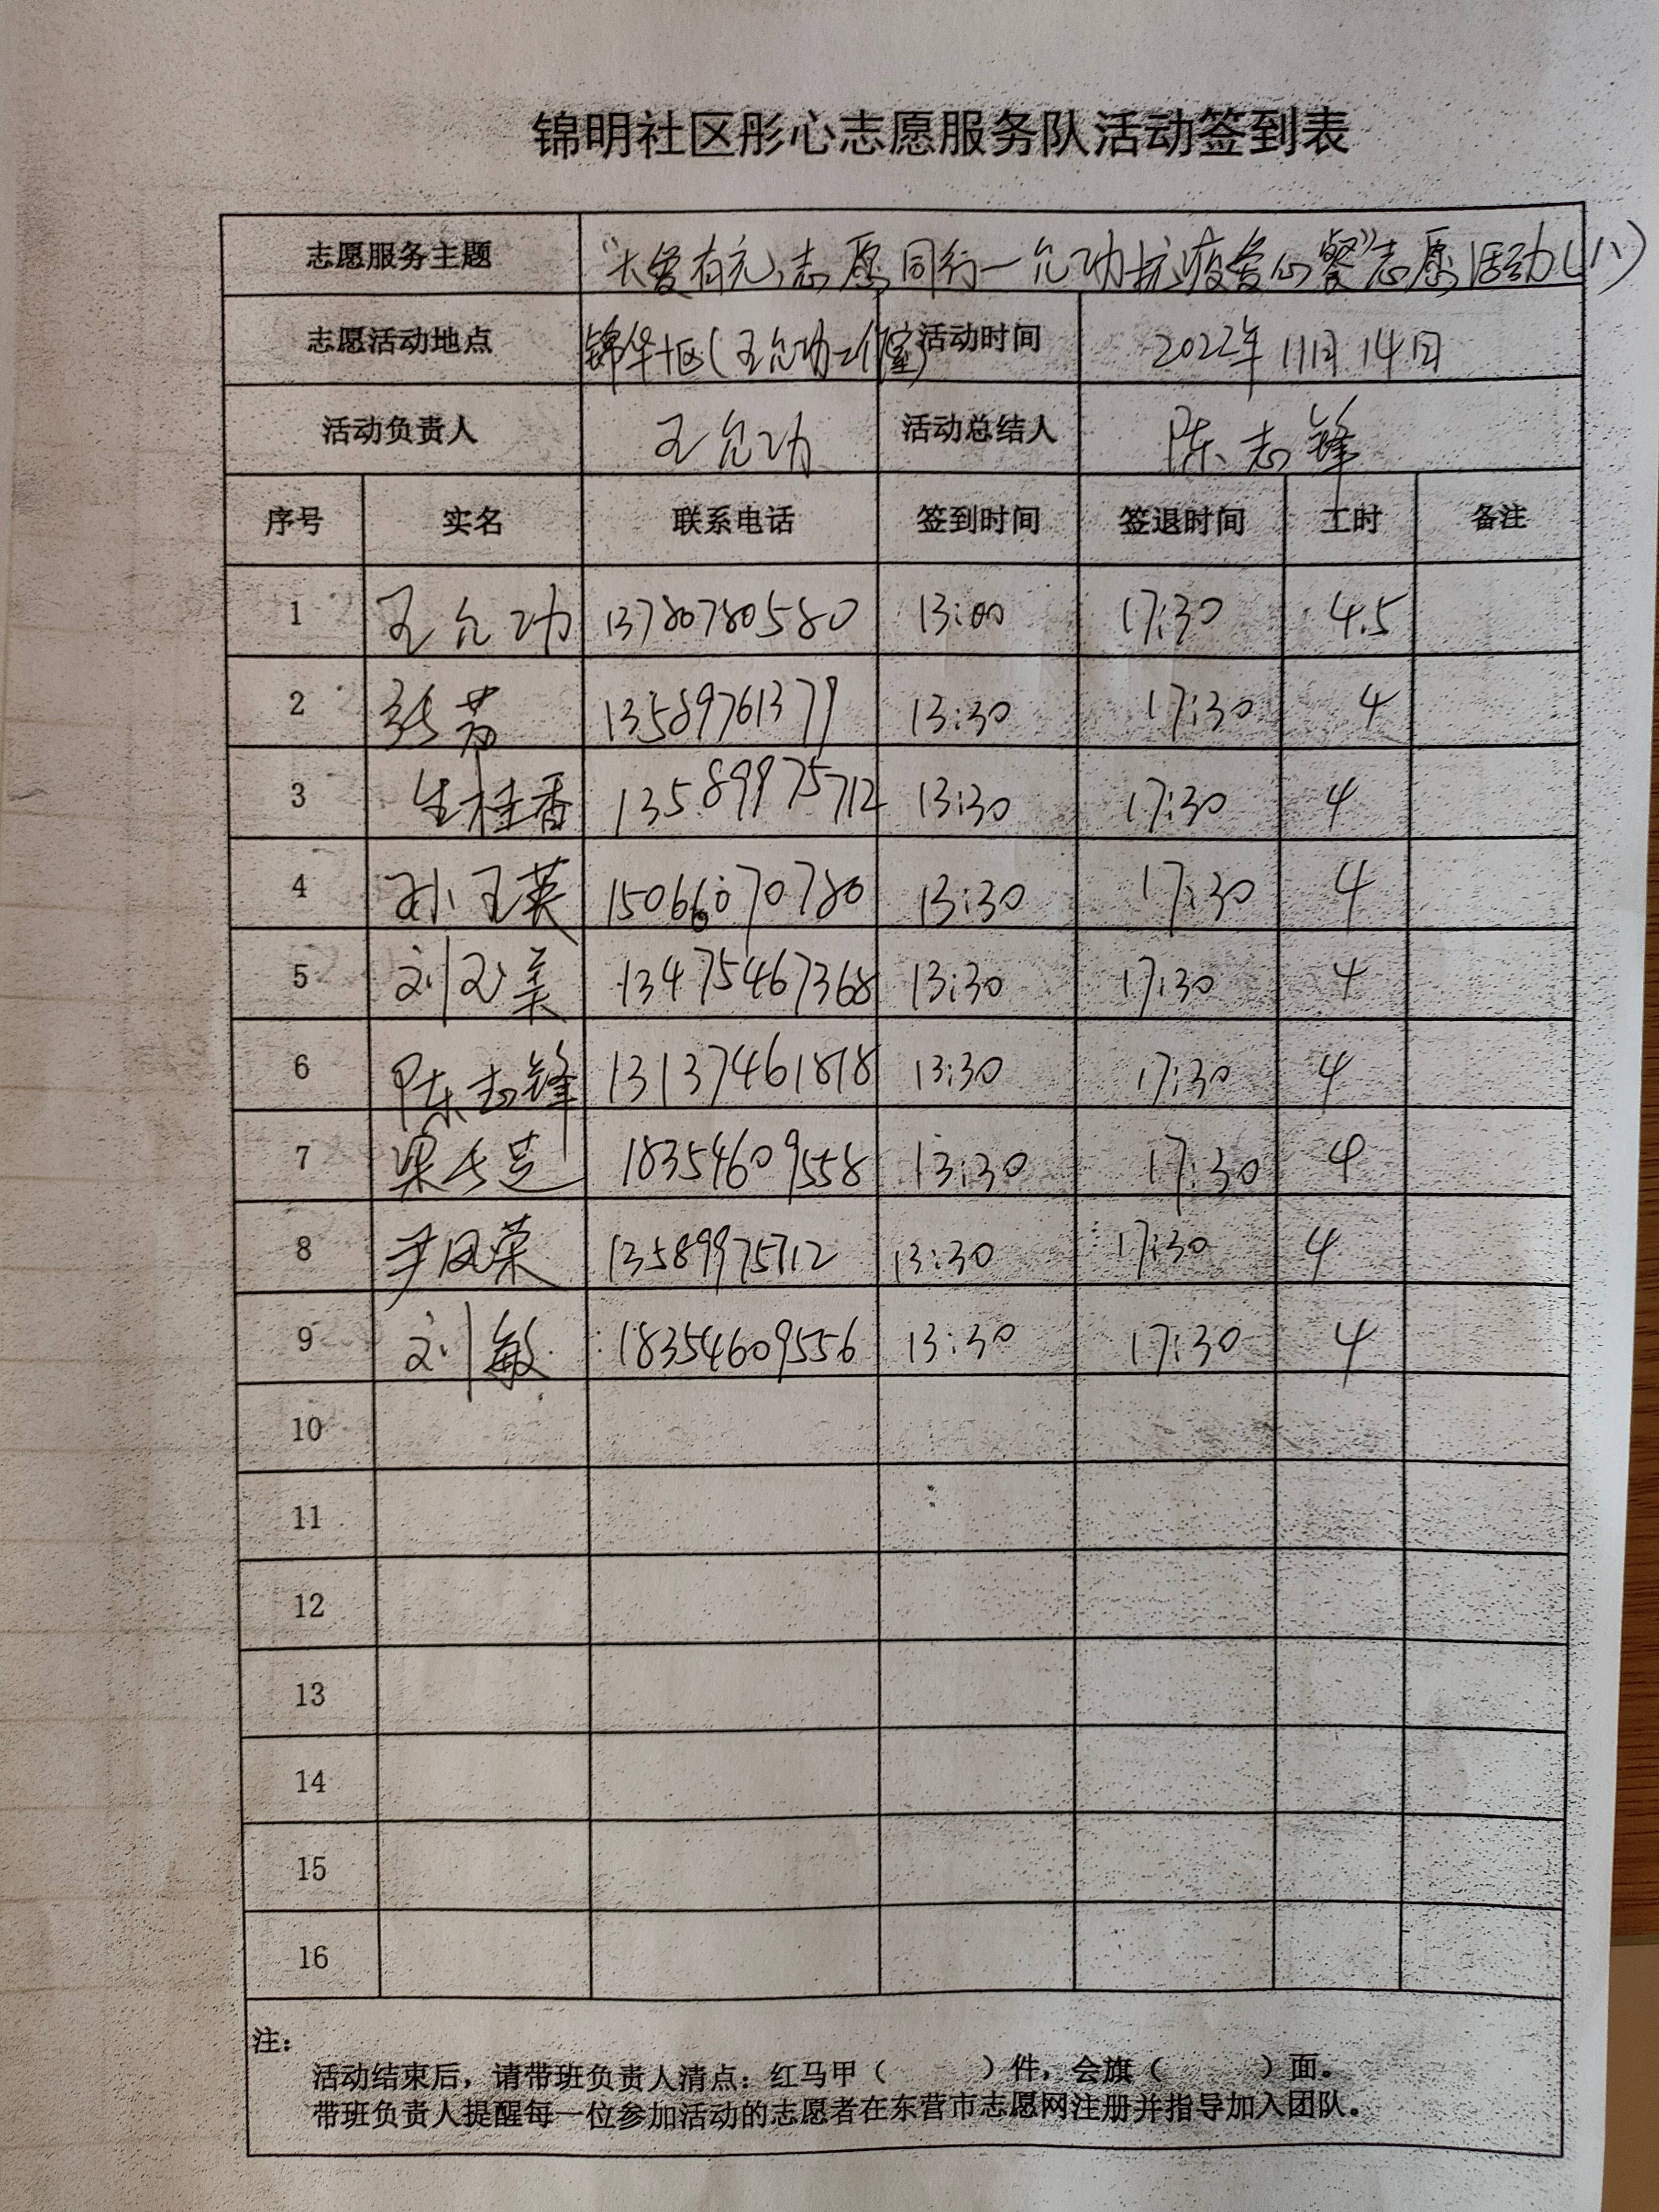 锦明社区彤心志愿服务队活动签到表
志愿服务主题 "大爱有元,志愿同行—允功抗疫爱心餐"志愿活动(八)
志愿活动地点 锦华社区(王允功工作室) 活动时间 2022年11月14日
活动负责人 王允功 活动总结人 陈志锋
序号 实名 联系电话 签到时间 签退时间 工时 备注
1 王允功 13780780580 13:00 17:30 4.5
2 张芳 13589761379 13:30 17:30 4
3 生桂香 13589975712 13:30 17:30 4
4 孙玉英 15066070780 13:30 17:30 4
5 刘玉美 13475467368 13:30 17:30 4
6 陈志锋 13137461818 13:30 17:30 4
7 梁 18354609558 13:30 17:30 4
8 尹凤荣 13589975712 13:30 17:30 4
9 刘敏 18354609556 13:30 17:30 4
10
11
12
13
14
15
16
注:
活动结束后,请带班负责人清点:红马甲( )件,会旗( )面。
带班负责人提醒每一位参加活动的志愿者在东营市志愿网注册并指导加入团队。